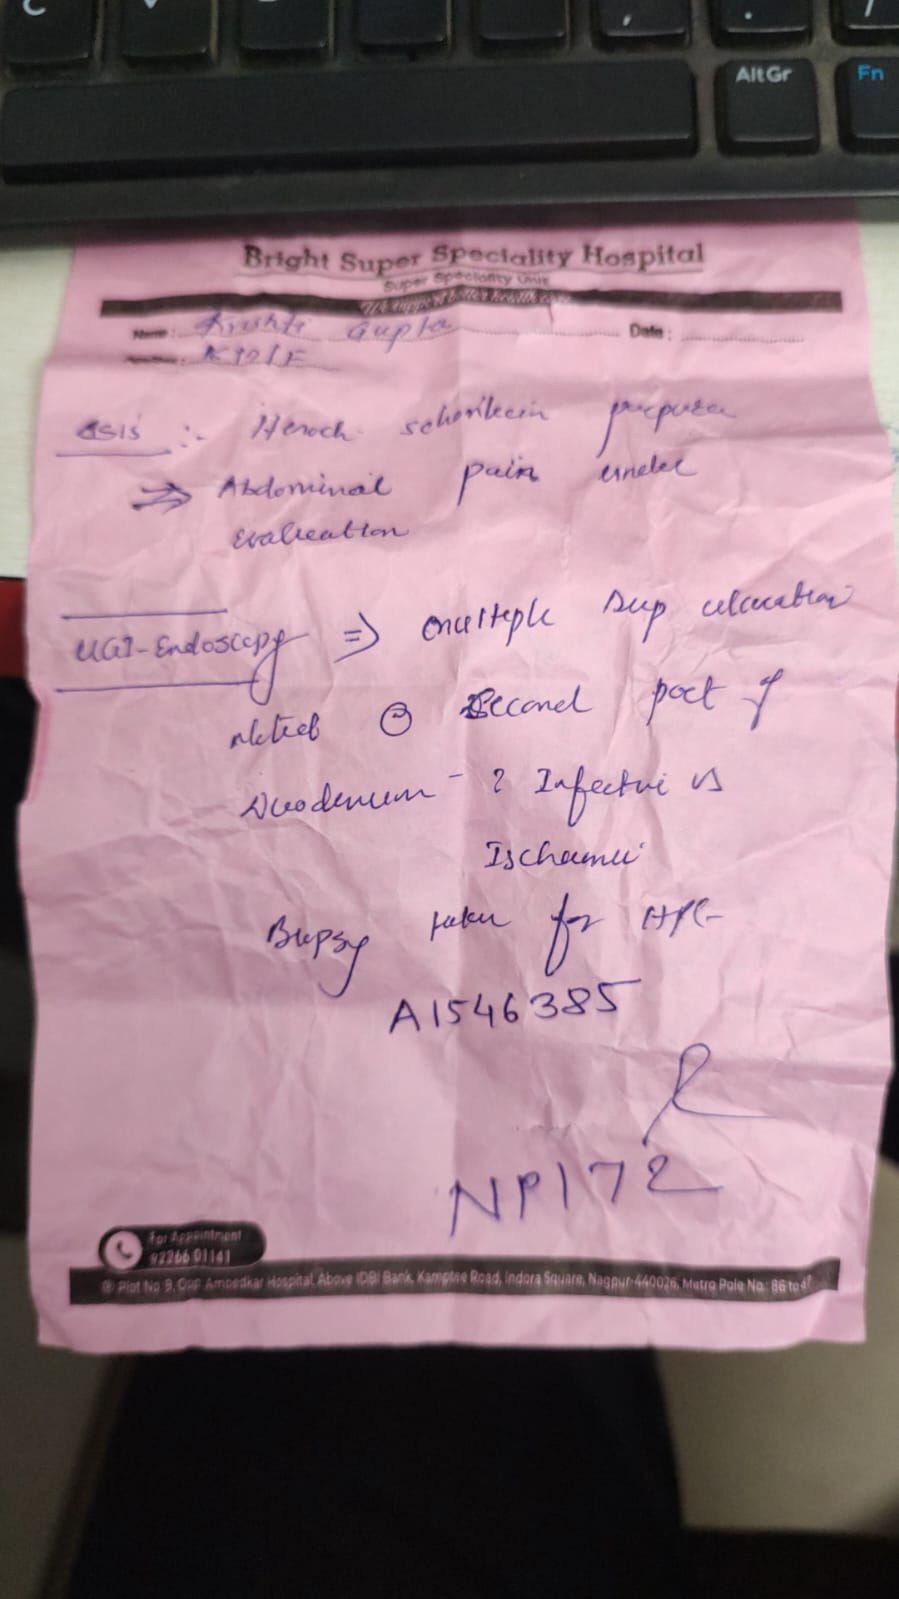 AltGr
Fn
Bright Super Speciality Hospital
Super Speciality Unit
We support better health care
Name : Gupta Date :
Henoch schonlein purpura
⇒ Abdominal pain under
evaluation
UGI-Endoscopy ⇒ multiple deep ulceration
noted second part of
Duodenum - ? Infective vs
Ischaemic
Biopsy taken for HPE
A1546385
NP172
For Appointment
92266 01141
Plot No 9, Opp Ambedkar Hospital, Above IDBI Bank, Kamptee Road, Indora Square, Nagpur-440026, Metro Pole No.: 86 to